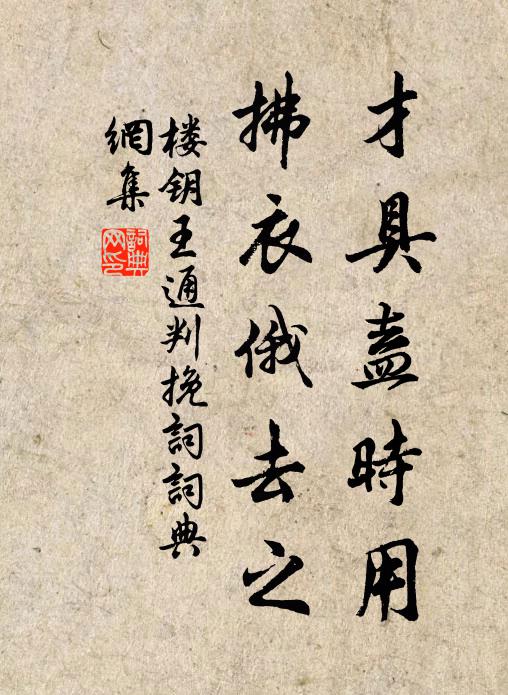 才具盍時用
拂衣俄去之
楼钥王通判挽詞詞典
網集
詞典网印